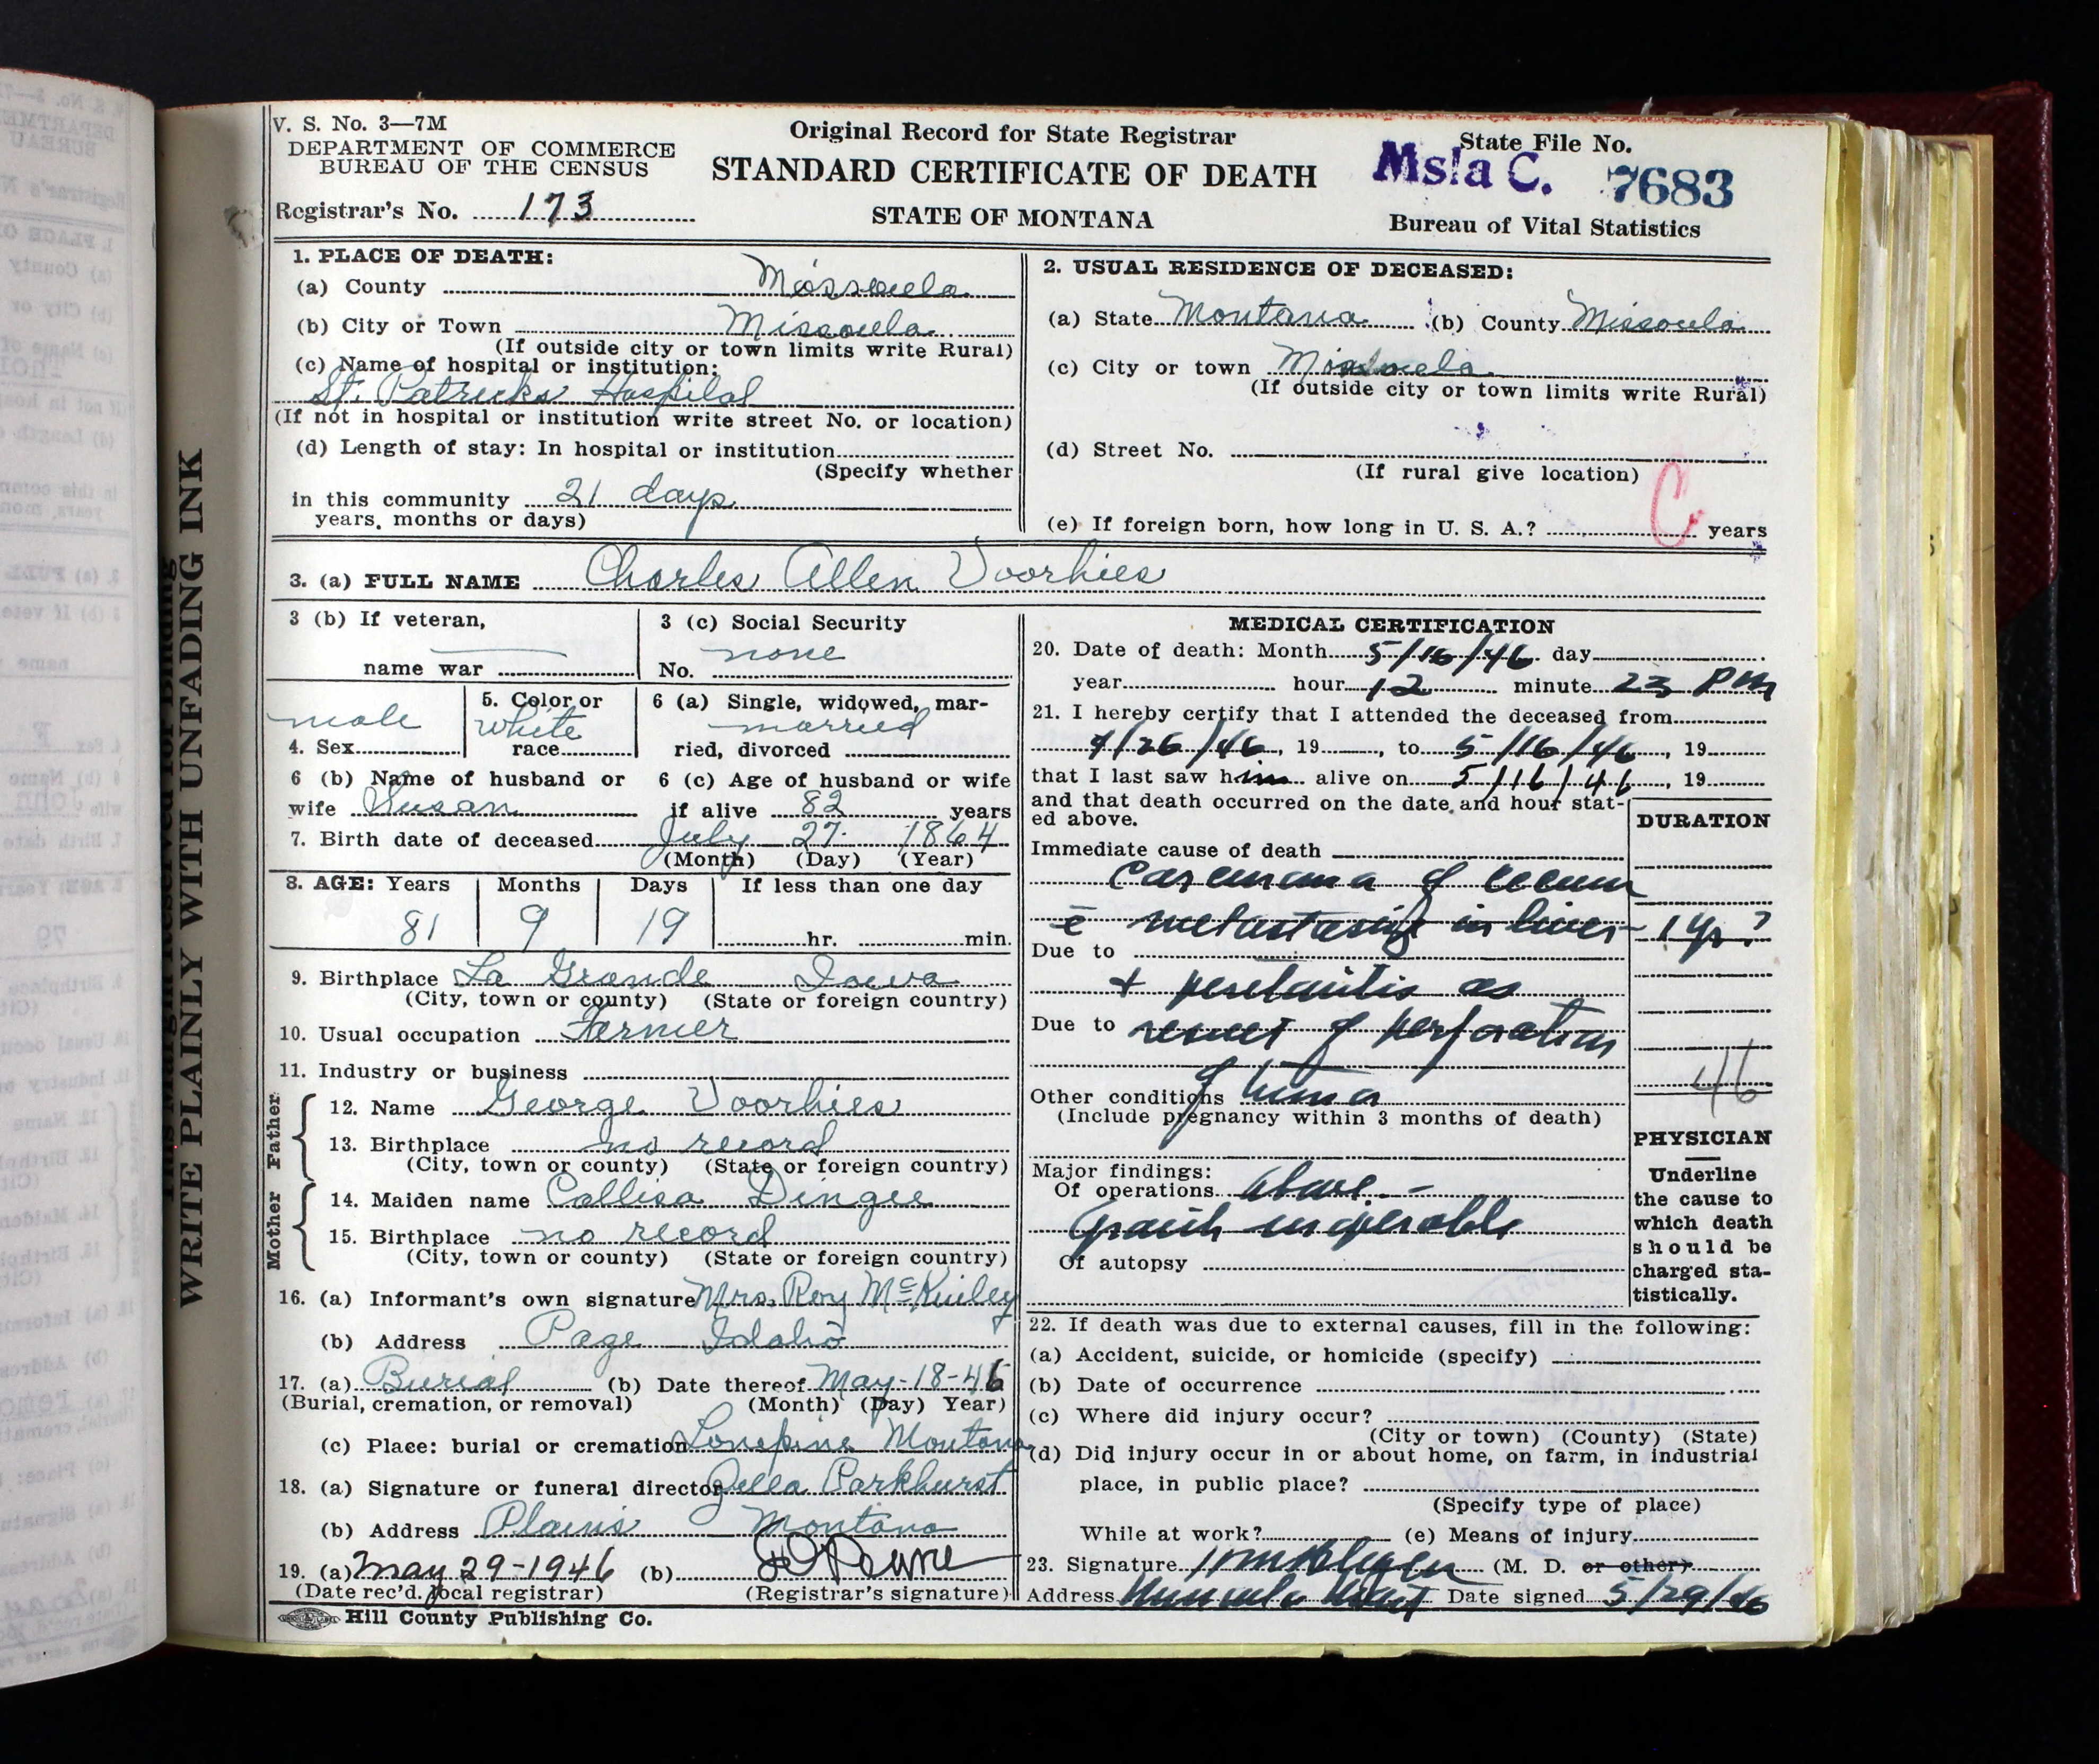 V. S. No. 3—7M
DEPARTMENT OF COMMERCE
BUREAU OF THE CENSUS
Registrar's No. 173
Original Record for State Registrar
STANDARD CERTIFICATE OF DEATH
STATE OF MONTANA
State File No.
Msla C. 7683
Bureau of Vital Statistics
WRITE PLAINLY WITH UNFADING INK
1. PLACE OF DEATH:
(a) County Missoula
(b) City or Town Missoula
(If outside city or town limits write Rural)
(c) Name of hospital or institution:
St. Patricks Hospital
(If not in hospital or institution write street No. or location)
(d) Length of stay: In hospital or institution
(Specify whether
in this community 21 days
years, months or days)
2. USUAL RESIDENCE OF DECEASED:
(a) State Montana (b) County Missoula
(c) City or town Missoula
(If outside city or town limits write Rural)
(d) Street No.
(If rural give location)
C
(e) If foreign born, how long in U. S. A.? years
3. (a) FULL NAME Charles Allen Voorhies
3 (b) If veteran,
name war
3 (c) Social Security
No. none
male
4. Sex
5. Color or
White
race
6 (a) Single, widowed, mar-
married
ried, divorced
6 (b) Name of husband or
wife Susan
6 (c) Age of husband or wife
if alive 82 years
7. Birth date of deceased July 27. 1864
(Month) (Day) (Year)
8. AGE: Years Months Days If less than one day
81 9 19 hr. min.
9. Birthplace La Grande Iowa
(City, town or county) (State or foreign country)
10. Usual occupation Farmer
11. Industry or business
Father
12. Name George Voorhies
13. Birthplace no record
(City, town or county) (State or foreign country)
Mother
14. Maiden name Callisa Dingee
15. Birthplace no record
(City, town or county) (State or foreign country)
16. (a) Informant's own signature Mrs. Roy McKinley
(b) Address Page Idaho
17. (a) Burial (b) Date thereof May-18-46
(Burial, cremation, or removal) (Month) (Day) Year)
(c) Place: burial or cremation Lonepine Montana
18. (a) Signature or funeral director Zella Parkhurst
(b) Address Plains Montana
19. (a) May 29-1946 (b)
(Date rec'd. local registrar) (Registrar's signature)
Hill County Publishing Co.
MEDICAL CERTIFICATION
20. Date of death: Month 5/16/46 day
year hour 12 minute 23 PM
21. I hereby certify that I attended the deceased from
4/26/46, 19, to 5/16/46, 19
that I last saw him alive on 5/16/46, 19
and that death occurred on the date and hour stat-
ed above.
DURATION
Immediate cause of death
Carcinoma of cecum
c̄ metastasis in liver 1 yr?
Due to
+ peritonitis as
Due to result of perforation
of tumor
46
Other conditions
(Include pregnancy within 3 months of death)
PHYSICIAN
Underline
the cause to
which death
should be
charged sta-
tistically.
Major findings:
Of operations above. -
Growth inoperable
Of autopsy
22. If death was due to external causes, fill in the following:
(a) Accident, suicide, or homicide (specify)
(b) Date of occurrence
(c) Where did injury occur?
(City or town) (County) (State)
(d) Did injury occur in or about home, on farm, in industrial
place, in public place?
(Specify type of place)
While at work? (e) Means of injury
23. Signature (M. D. or other)
Address Missoula Mont Date signed 5/29/46